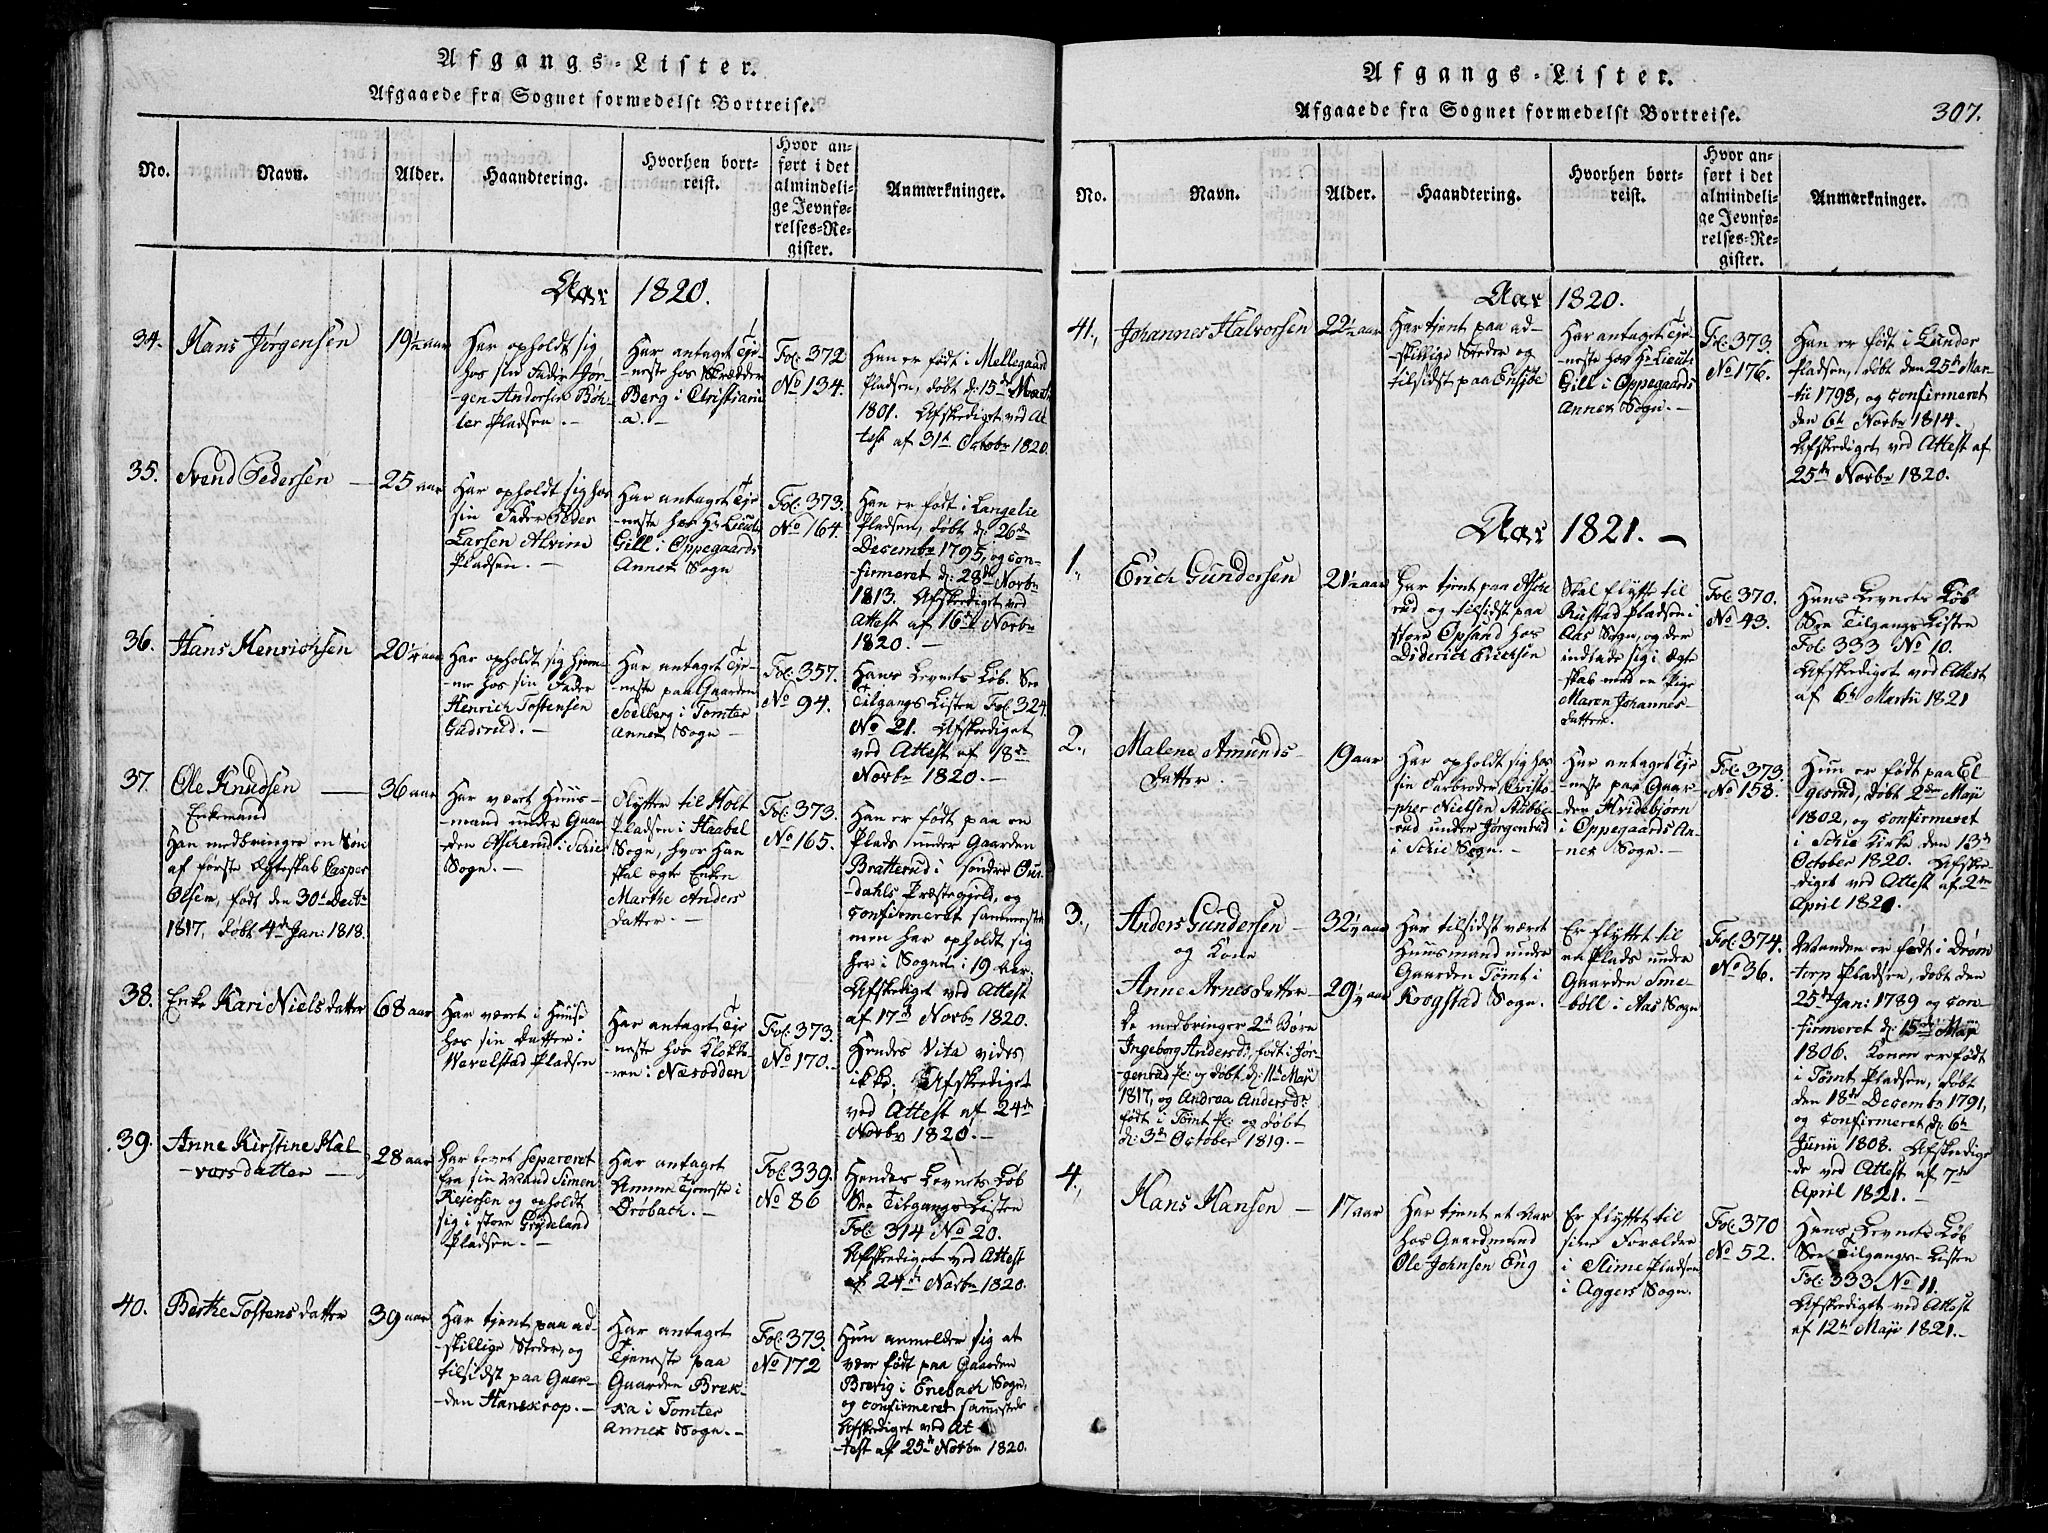 Afgangs-Lister.
Afgaaede fra Sognet formedelst Bortreise.
No.
Navn.
Alder.
Haandtering.
Hvorhen bort-
reist.
Hvor an-
ført i det
almindeli-
ge Jevnfø-
relses-Re-
gister.
Anmærkninger.
Aar 1820.
34.
Hans Jørgensen
19½ aar
Har opholdt sig
hos sin Fader Jør-
gen Andersen Bøh-
ler Pladsen. -
Har antaget Tje-
neste hos Skrædder
Berg i Christiani-
a. -
Fol: 372
No 134.
Han er født i Mellegaard
Pladsen, døbt d: 15de Martii
1801. Afskediget ved At-
test af 31te Octobr 1820.
35.
Svend Pedersen
25 aar
Har opholdt sig hos
sin Fader Peder
Larsen Alvim
Pladsen. -
Har antaget Tje-
neste hos Hr Lieut:
Gill i Oppegaards
Annex Sogn
Fol: 373.
No 164.
Han er født i Langelie
Pladsen, døbt d: 26de
Decembr 1795, og con-
firmeret d: 28de Novbr
1813. Afskediget ved
Attest af 16de Novbr
1820. -
36.
Hans Henrichsen
20¼ aar
Har opholdt sig hjem-
me hos sin Fader
Henrich Tostensen
Gadsrud. -
Har antaget Tje-
neste paa Gaarden
Soelberg i Tomter
Annex Sogn -
Fol: 357.
No 94.
Hans Levnets Løb. See
TilgangsListen Fol: 324.
No 21. Afskediget
ved Attest af 18de
Novbr 1820. -
37.
Ole Knudsen
Enkemand
Han medbringer en Søn
af første Ægteskab Casper
Olsen, født den 30te Decbr
1817, døbt 4de Jan: 1818.
36 aar
Har været Huus-
mand under Gaar-
den Ascherud i Schie
Sogn. -
Flytter til Holt
Pladsen i Haabøl
Sogn, hvor han
skal ægte Enken
Marthe Anders
datter. -
Fol: 373.
No 165.
Han er født paa en
Plads under Gaarden
Bratterud i søndre Our-
dahls Præstegjeld, og
confirmeret sammesteds
men har opholdt sig
her i Sognet i 19 aar.
Afskediget ved Attest
af 17de Novbr 1820.
38.
Enke Kari Nielsdatter
68 aar
Har været i Huuse
hos sin Datter i
Wevelstad Pladsen
Har antaget Tje-
neste hos Klokke-
ren i Næsodden
Fol: 373.
No 170.
Hendes Vita vides
ikke. Afskediget
ved Attest af 24de
Novbr 1820. -
39.
Anne Kirstine Hal-
vorsdatter
28 aar
Har levet separeret
fra sin Mand Simen
Rejersen og opholdt
sig i store Grydeland
Pladsen. -
Har antaget
Amme Tjeneste i
Drøbach. -
Fol: 339.
No 86
Hendes Levnets Løb
See Tilgangs Listen
Fol: 314 No 20.
Afskediget ved Attest
af 24de Novbr 1820.
40.
Berthe Tostensdatter
39 aar
Har tjent paa ad-
skillige Steder, og
tilsidst paa Gaar-
den Hanekrop. -
Har antaget
Tjeneste paa
Gaarden Brek-
ka i Tomter
Annex Sogn. -
Fol: 373.
No 172
Hun anmelder sig at
være født paa Gaarden
Brevig i Enebach Sogn,
og confirmeret sammesteds
Afskediget ved At-
test af 25de Novbr 1820.
Afgangs-Lister.
Afgaaede fra Sognet formedelst Bortreise.
307.
No.
Navn.
Alder.
Haandtering.
Hvorhen bort-
reist.
Hvor an-
ført i det
almindeli-
ge Jevnfø-
relses-Re-
gister.
Anmærkninger.
Aar 1820.
41.,
Johannes Halvorsen
22½ aar
Har tjent paa ad-
skillige Steder og
tilsidst paa Ensjøe
Har antaget Tje-
neste hos Hr Lieut:
Gill i Oppegaards
Annex Sogn. -
Fol: 373
No 176.
Han er født i Lunder
Pladsen, døbt den 25de Mar-
tii 1798, og confirmeret
den 6te Novbr 1814.
Afskediget ved Attest af
25de Novbr 1820.
Aar 1821. -
1.,
Erich Gundersen
21½ aar
Har tjent paa Asche-
rud og tilsidst paa
store Opsand hos
Diderich Erichsen
Skal flytte til
Rustad Pladsen i
Aas Sogn, og der
indlade sig i Ægte
skab med en Pige
Maren Johannes-
datter.
Fol: 370.
No 43.
Hans Levnets Løb
See TilgangsListen
Fol: 333 No 10.
Afskediget ved Attest
af 6te Martii 1821
2.,
Malene Amunds-
datter
19 aar
Har opholdt sig hos
sin Farbroder Christo-
pher Nielsen Kubbe-
rud under Jørgenrud
i Schie Sogn. -
Har antaget Tje-
neste paa Gaar-
den Hvidebjørn
i Oppegaards An-
nex Sogn. -
Fol: 373.
No 158.
Hun er født paa El-
gesrud, døbt 2den Maji
1802, og confirmeret
i Schie Kirke den 15de
October 1820. Afske-
diget ved Attest af 2den
April 1821.
3.,
Anders Gundersen -
og Kone
Anne Arnesdatter -
De medbringer 2de Børn
Ingeborg Andersdr, født i Jør-
genrud Pl: og døbt d: 11te Maji
1817, og Andrea Andersdr
født i Tømt Pl: og døbt
d: 3de October 1819. -
32¼ aar
29¼ aar
Har tilsidst været
Huusmand under
Gaarden Tømt i
Krogstad Sogn.
Er flyttet til
en Plads under
Gaarden Sme-
bøll i Aas Sogn
Fol: 374.
No 36.
Manden er født i Drøm-
torp Pladsen, døbt den
25de Jan: 1789 og con-
firmeret d: 15de Maji
1806. Konen er født
i Tømt Pladsen, døbt
den 18de Decembr 1791,
og confirmeret d: 6te
Junii 1808. Afskedige-
de ved Attest af 7de
April 1821. -
4.,
Hans Hansen -
17 aar
Har tjent et Aar
hos Gaardmand
Ole Johnsen Eng
Er flyttet til
sine Forældre
i Slime Pladsen
i Aggers Sogn.
Fol: 370
No 52.
Hans Levnets Løb
See Tilgangs-Listen
Fol: 333 No 11.
Afskediget ved Attest
af 12te Maji 1821. -